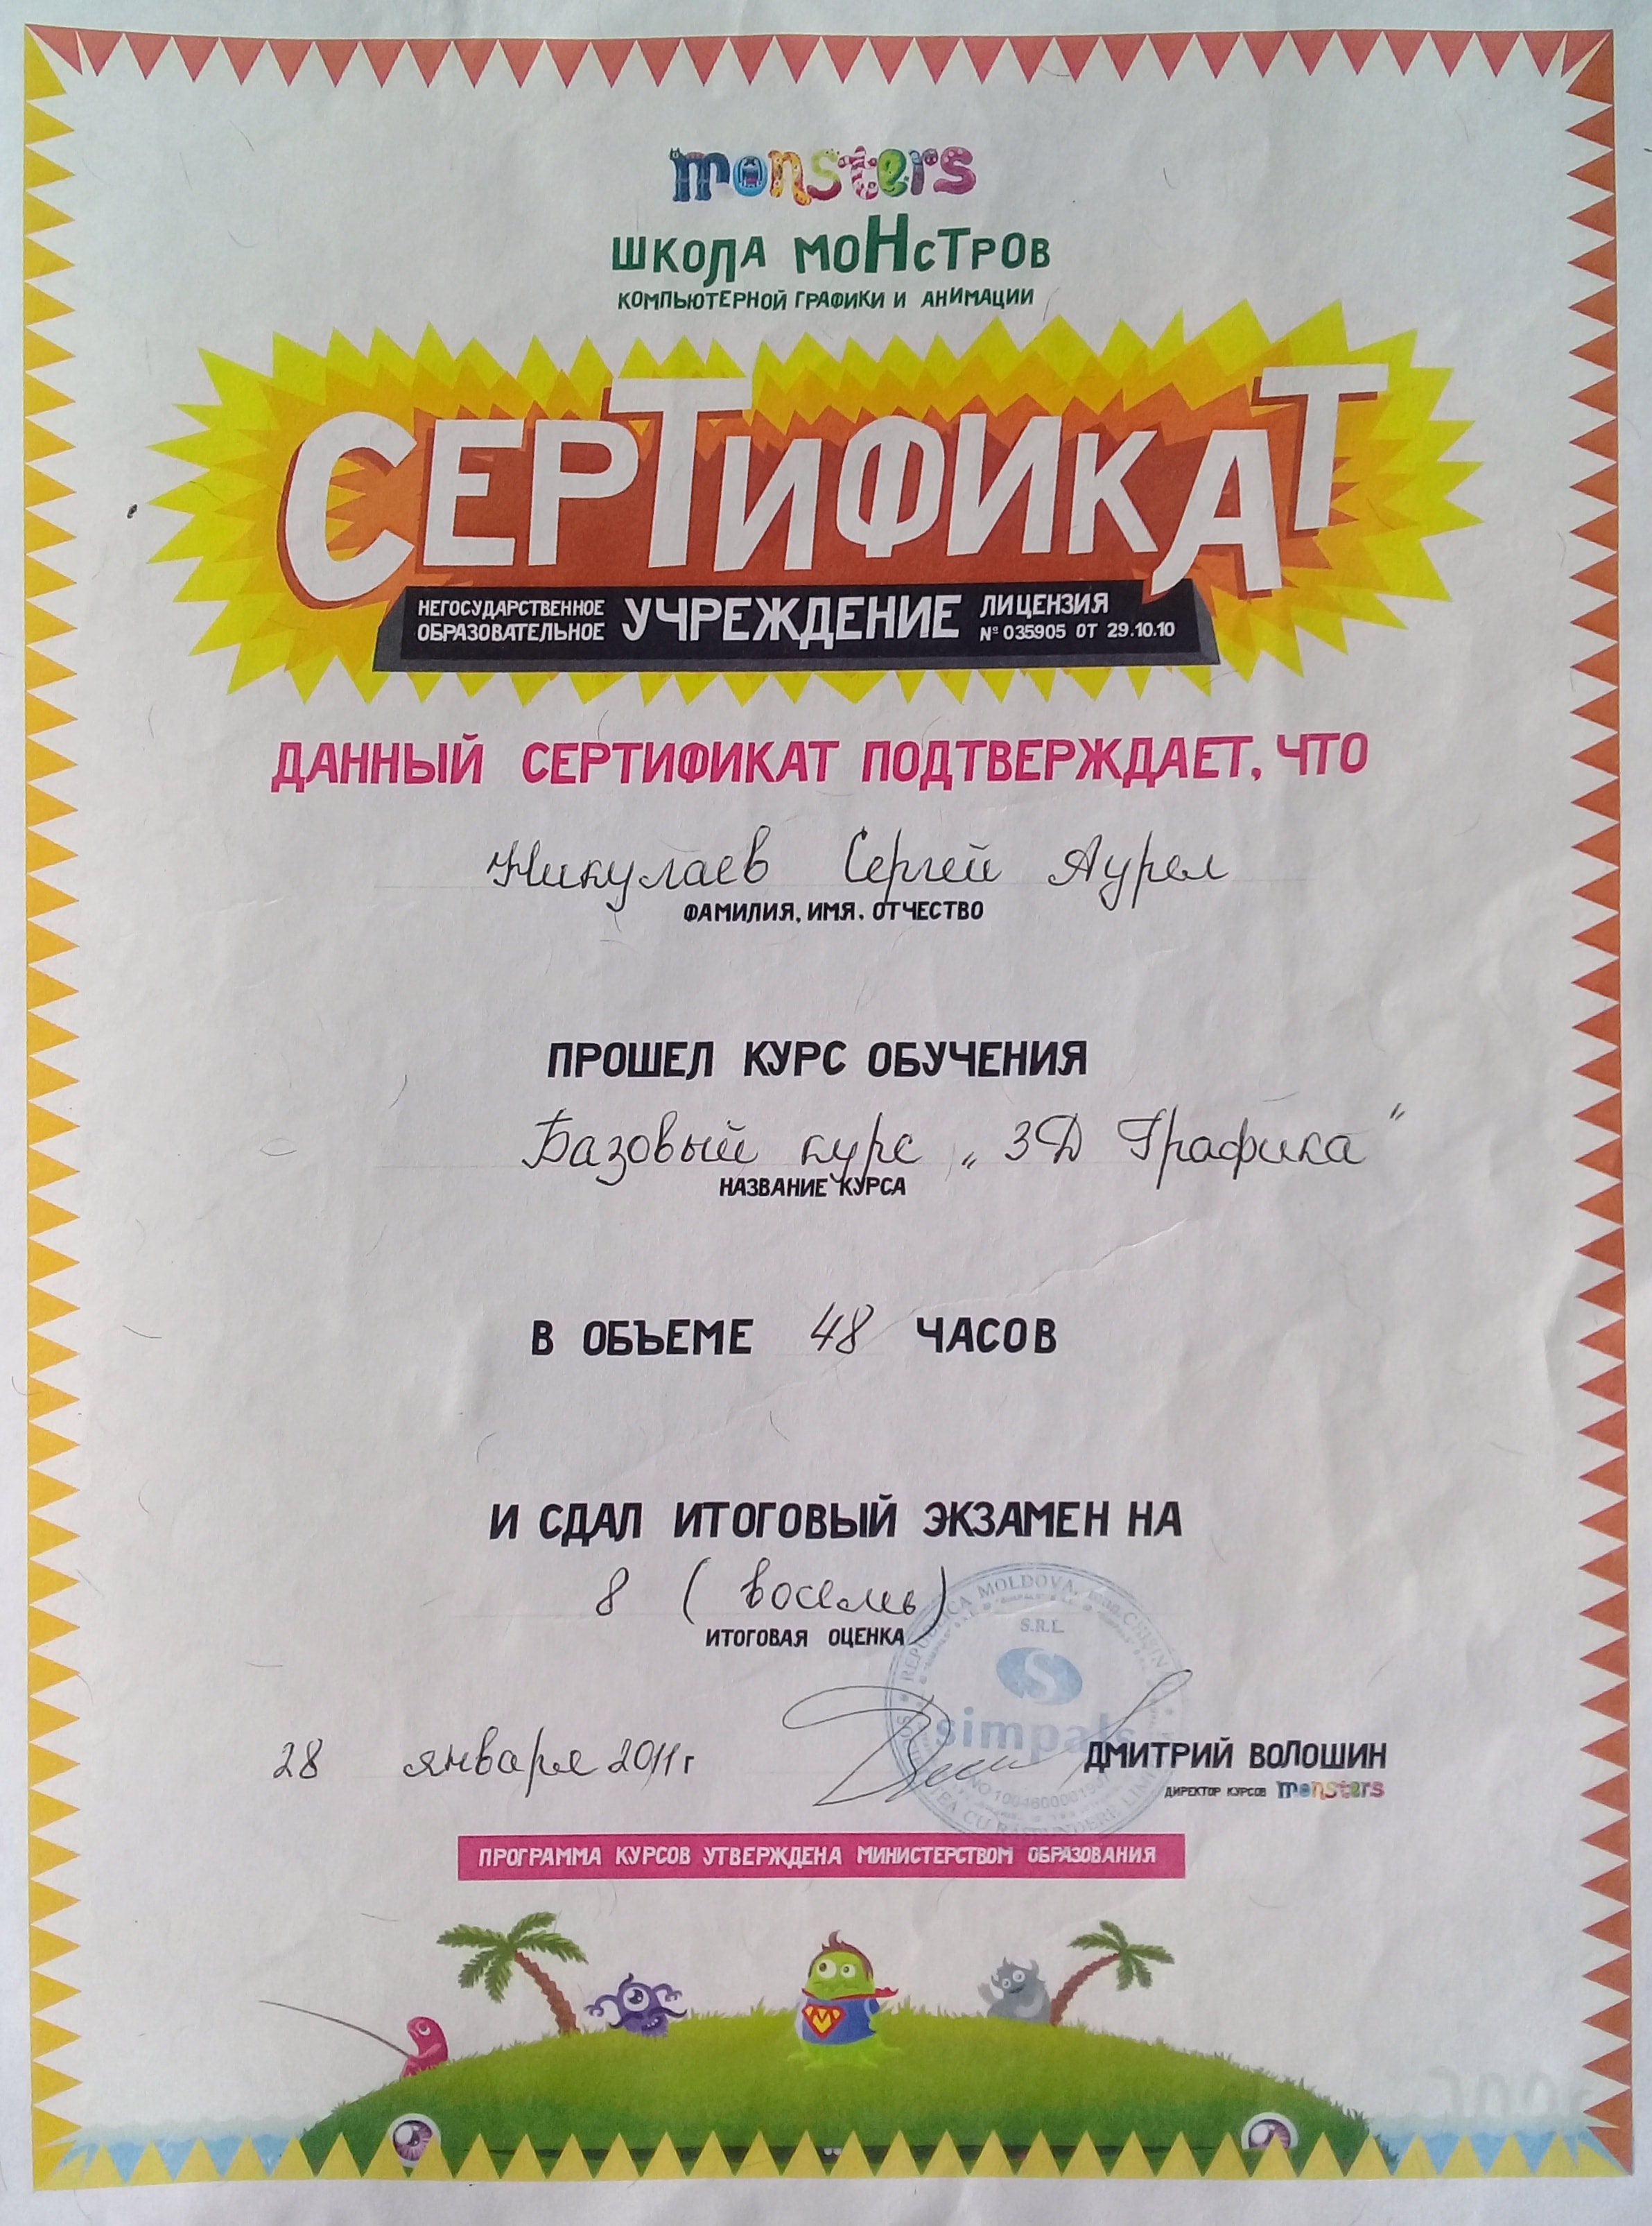 monsters
ШКОЛА МОНСТРОВ
КОМПЬЮТЕРНОЙ ГРАФИКИ И АНИМАЦИИ
СЕРТИФИКАТ
НЕГОСУДАРСТВЕННОЕ ОБРАЗОВАТЕЛЬНОЕ УЧРЕЖДЕНИЕ ЛИЦЕНЗИЯ № 035905 ОТ 29.10.10
ДАННЫЙ СЕРТИФИКАТ ПОДТВЕРЖДАЕТ, ЧТО
Никулаев Сергей Аурел
ФАМИЛИЯ, ИМЯ, ОТЧЕСТВО
ПРОШЕЛ КУРС ОБУЧЕНИЯ
Базовый курс „3Д Графика"
НАЗВАНИЕ КУРСА
В ОБЪЕМЕ 48 ЧАСОВ
И СДАЛ ИТОГОВЫЙ ЭКЗАМЕН НА
8 (восемь)
ИТОГОВАЯ ОЦЕНКА
REPUBLICA MOLDOVA
S.R.L.
simpals
28 января 2011 г
ДМИТРИЙ ВОЛОШИН
ДИРЕКТОР КУРСОВ monsters
ПРОГРАММА КУРСОВ УТВЕРЖДЕНА МИНИСТЕРСТВОМ ОБРАЗОВАНИЯ
M